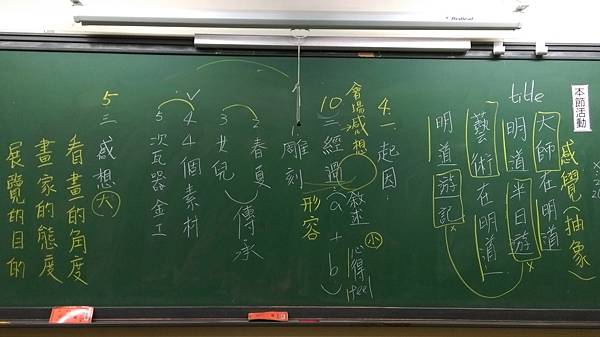 本節活動
title
感覺(抽象)
大師在明道
明道半日遊
藝術在明道
明道遊記
4 一、起因
會場感想
10 二、經過(a + b)
敘述
心得
feel
小
形容
1 雕刻
2 春夏
3 女兒
傳承
4 4個素材
5 次瓦器金工
5 三、感想
大
看畫的角度
畫家的態度
展覽的目的